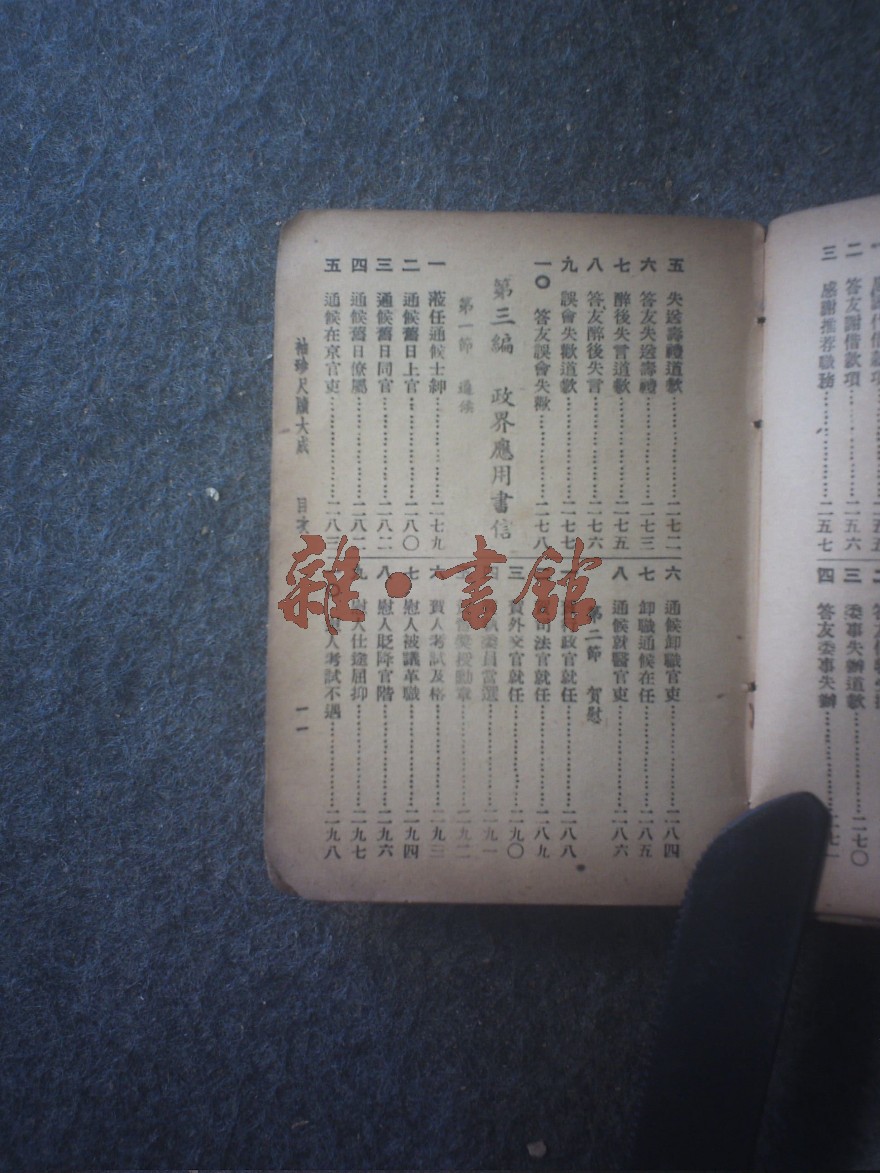 五 失送壽禮道歉 二七二
六 答友失送壽禮 二七三
七 醉後失言道歉 二七五
八 答友醉後失言 二七六
九 誤會失歡道歉 二七七
一〇 答友誤會失歡 二七八
第三編 政界應用書信
第一節 通候
一 蒞任通候士紳 二七九
二 通候舊日上官 二八〇
三 通候舊日同官 二八二
四 通候舊日僚屬 二八二
五 通候在京官吏 二八三
六 通候卸職官吏 二八四
七 卸職通候在任 二八五
八 通候就醫官吏 二八六
第二節 賀慰
政官就任 二八八
司法官就任 二八九
三 賀外交官就任 二九〇
委員當選 二九一
授勳章 二九二
六 賀人考試及格 二九三
七 慰人被議革職 二九四
八 慰人貶降官階 二九六
九 慰人仕途屈抑 二九七
人考試不遇 二九八
袖珍尺牘大成 目次 一一
雜·書館
二 答友謝借款項 二五六
三 感謝推荐職務 二五七
三 委事失辦道歉 二七〇
四 答友委事失辦 二七一